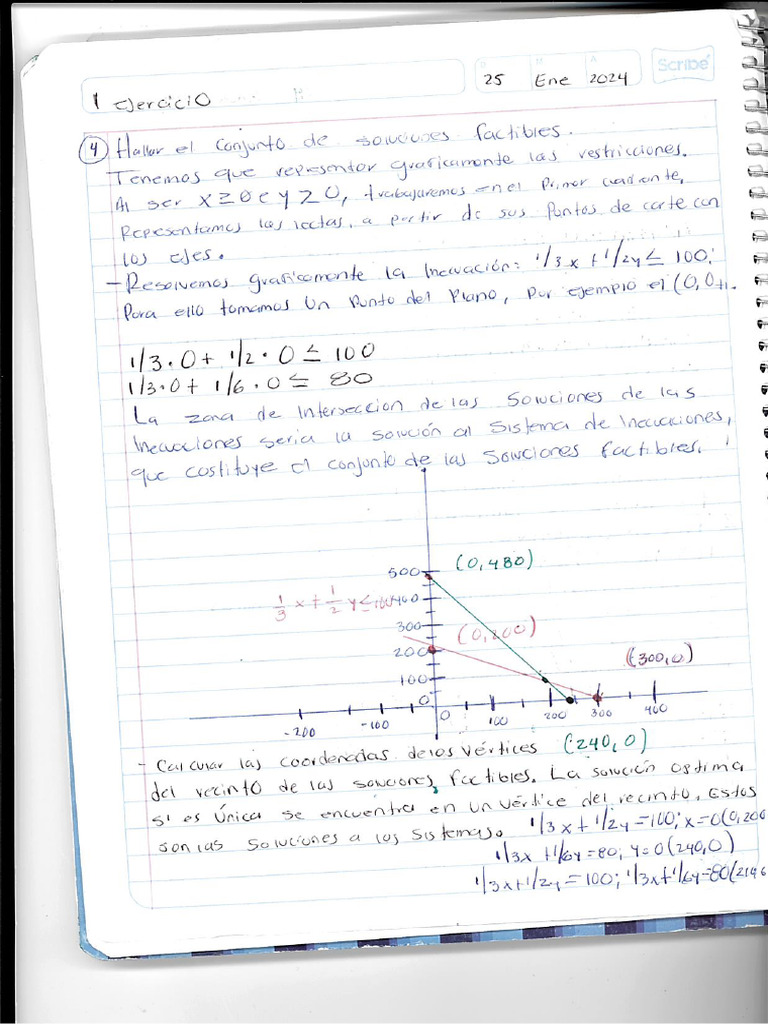 Scribe
D M A
25 Ene 2024
1 ejercicio
4 Hallar el conjunto de soluciones factibles.
Tenemos que representar graficamente las restricciones.
Al ser x≥0 e y≥0, trabajaremos en el primer cuadrante,
Representamos las rectas, a partir de sus Puntos de corte con
los ejes.
- Resolvemos graficamente la Inecuación: 1/3x + 1/2y ≤ 100;
Para ello tomamos Un Punto del Plano, Por ejemplo el (0,0
1/3·0 + 1/2·0 ≤ 100
1/3·0 + 1/6·0 ≤ 80
La zona de Interseccion de las Soluciones de las
Inecuaciones seria la Solución al Sistema de Inecuaciones,
que costituye el conjunto de las Soluciones factibles.
500 (0,480)
1/3 x + 1/2 y ≤ 100 400
300 (0,200)
200 (300,0)
100
0
-200 -100 0 100 200 300 400
- Calcular las coordenadas de los vértices (240,0)
del recinto de las soluciones factibles. La solución optima
si es Única se encuentra en un vértice del recinto, Estos
son las Soluciones a los Sistemas. 1/3x + 1/2y = 100; x=0(0,200
1/3x + 1/6y = 80; y=0(240,0)
1/3x + 1/2y = 100; 1/3x + 1/6y = 80